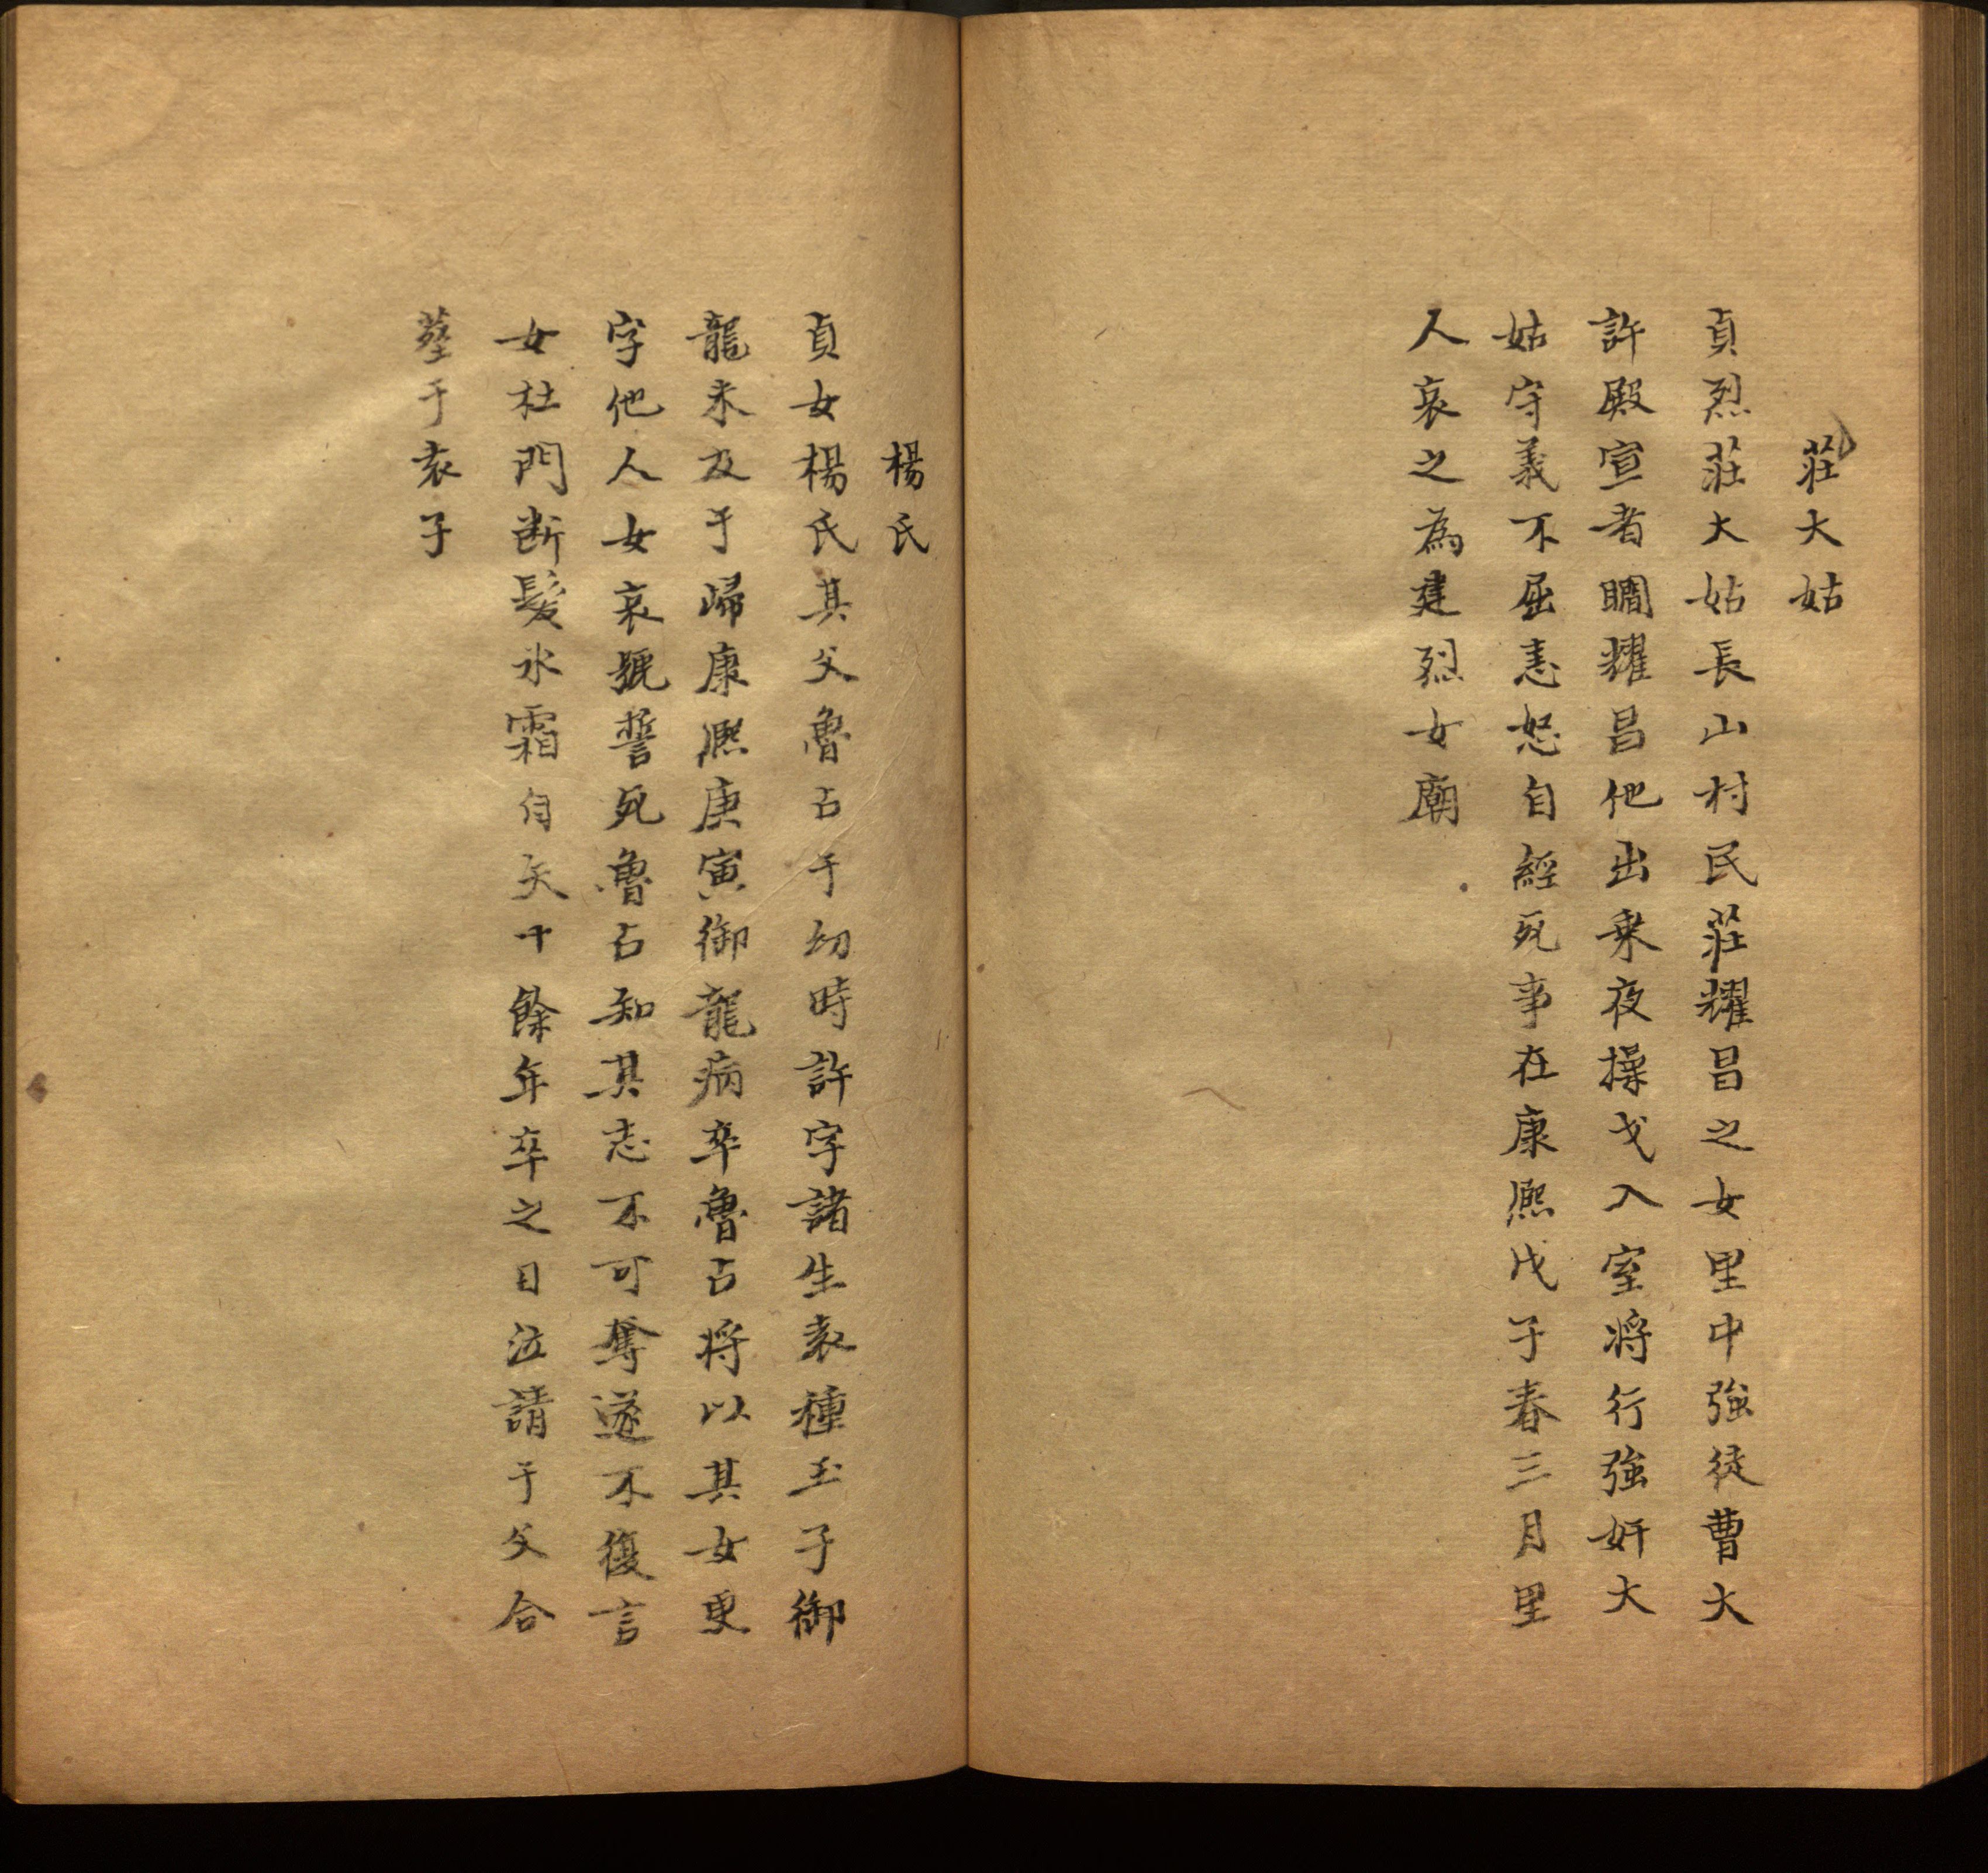 莊大姑
貞烈莊大姑長山村民莊耀昌之女里中強徒曹大
許殿宣者瞷耀昌他出乘夜操戈入室將行強奸大
姑守義不屈恚怒自經死事在康熈戊子春三月里
人哀之為建烈女廟
楊氏
貞女楊氏其父魯占于幼時許字諸生袁種玉子御
龍未及于歸康熈庚寅御龍病卒魯占将以其女更
字他人女哀號誓死魯占知其志不可奪遂不復言
女杜門断髮氷霜自矢十餘年卒之日泣請于父合
塟于袁子